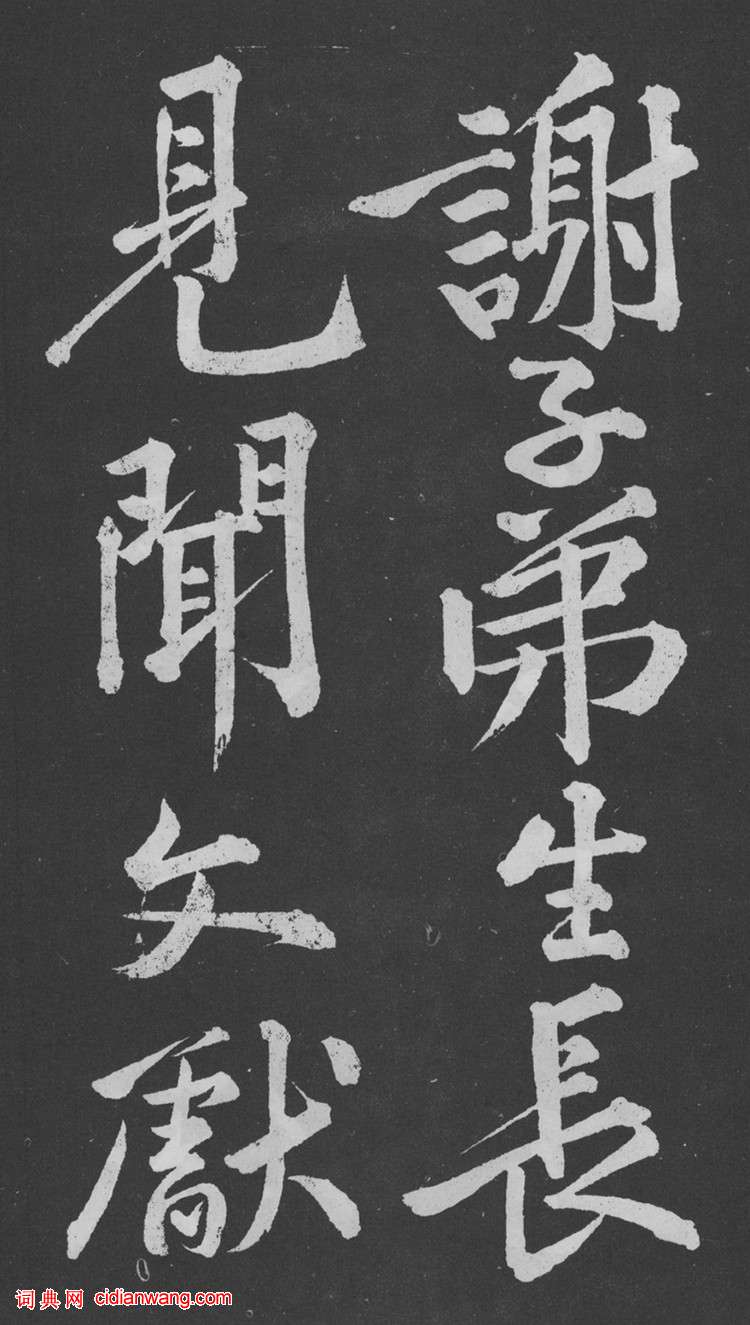 謝子弟生長
見聞文獻
词典网 cidianwang.com